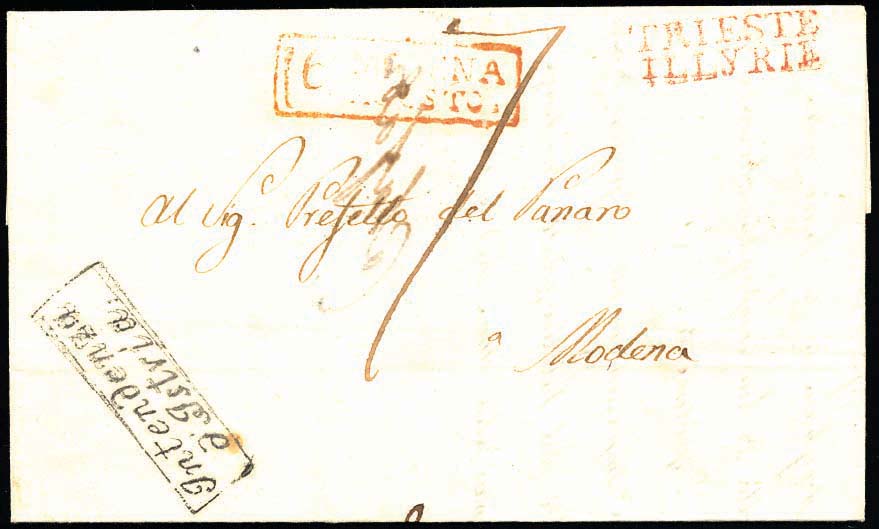 TRIESTE
ILLYRIE
6
AGOSTO.
7
Al Sig.r Prefetto del Panaro
a Modena
Intendenza
d'Istria.